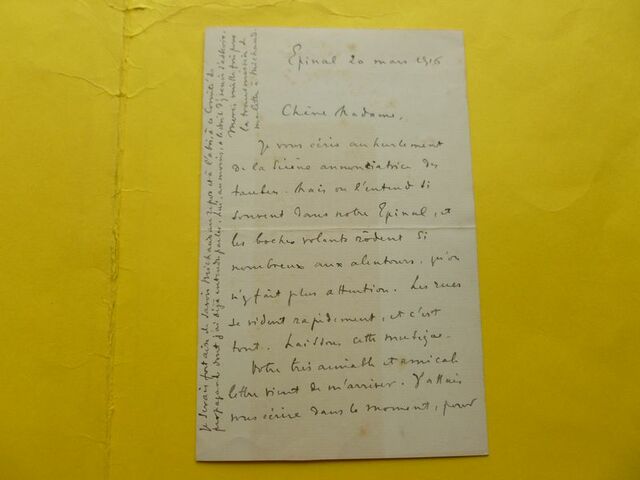 Epinal 20 mars 1916
Chère Madame,
Je vous écris au hurlement
de la sirène annonciatrice des
taubes. Mais on l'entend si
souvent dans notre Epinal, et
les boches volants rôdent si
nombreux aux alentours, qu'on
n'y fait plus attention. Les rues
se vident rapidement, et c'est
tout. Laissons cette musique.
Votre très aimable et amicale
lettre vient de m'arriver. J'allais
vous écrire dans le moment, pour
Je serais fort aise de savoir Michaud au repos et à l'abri, à ce Comité de
propagande dont j'ai déjà entendu parler. Lui, au moins, a le droit d'y
Merci mille fois pour
la transmission de
ma lettre à Michaud.